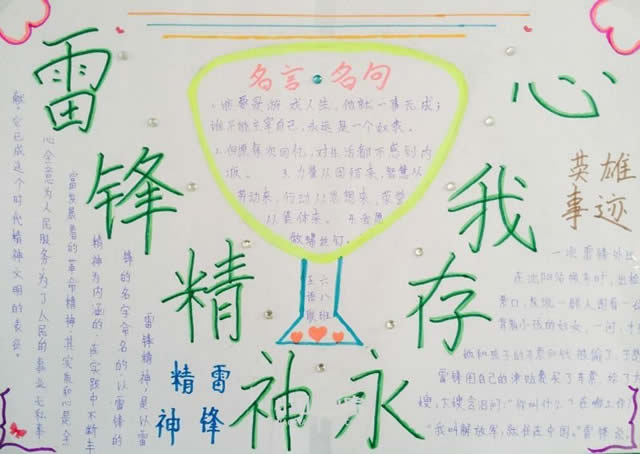 雷锋精神永存我心
名言·名句
1.谁要是游戏人生,他就一事无成;
谁不能主宰自己,永远是一个奴隶。
2.但愿每次回忆,对生活都不感到内
疚。 3.力量从团结来,智慧从
劳动来,行动从思想来,荣誉
从集体来。 4.永愿
做螺丝钉。
六八班
英雄
事迹
一次雷锋外出
在沈阳站换车时,出检
票口,发现一群人围着一
背着小孩的妇女,一问,
她和孩子的车票和钱
雷锋用自己的津贴费买了车票,
嫂,大嫂含泪问:“你叫什么?在哪工作
“我叫解放军,就住在中国。”雷锋
雷锋
精神
雷锋精神,是以雷
锋的名字命名的,以雷锋的
精神为内涵的,在实践中不断丰
富发展着的革命精神,其实质和核心是全
心全意为人民服务,为了人民的事业无私奉
献。它已成这个时代精神文明的表征。